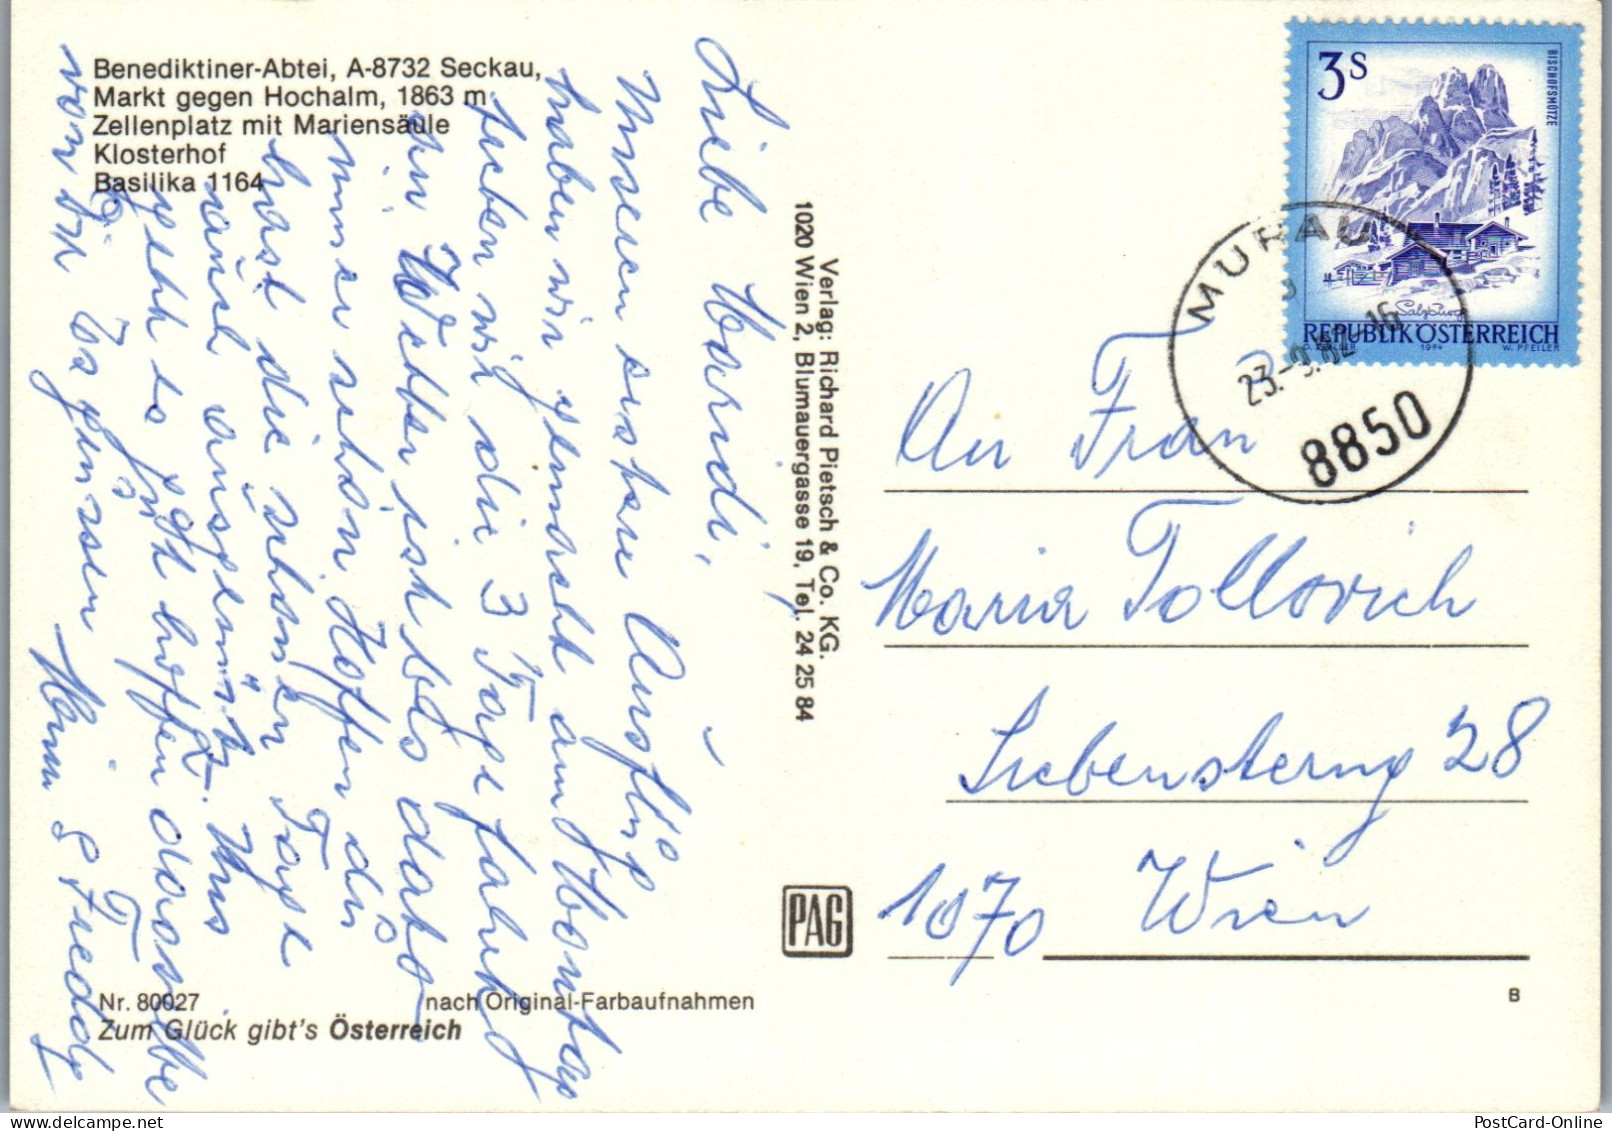 Benediktiner-Abtei, A-8732 Seckau,
Markt gegen Hochalm, 1863 m
Zellenplatz mit Mariensäule
Klosterhof
Basilika 1164
Liebe Mariedi,
Unseren ersten Ausflug
haben wir gemacht am Montag
wir die 3 Tage
ein Wetter ist bis dato
immer schön. Hoffen du
hast die schönen Tage
auch ausgenützt. Uns
geht es gut hoffen dasselbe
von Dir
Mimi & Freddy
Verlag: Richard Pietsch & Co. KG.
1020 Wien 2, Blumauergasse 19, Tel. 24 25 84
PAG
Nr. 80027
nach Original-Farbaufnahmen
Zum Glück gibt's Österreich
3 S
BISCHOFSMÜTZE
Salzburg
REPUBLIK ÖSTERREICH
1974
W. PFEILER
MURAU
23.-9.82-16
8850
An Frau
Maria Tollovich
Siebensterng 28
1070 Wien
B
PostCard-Online